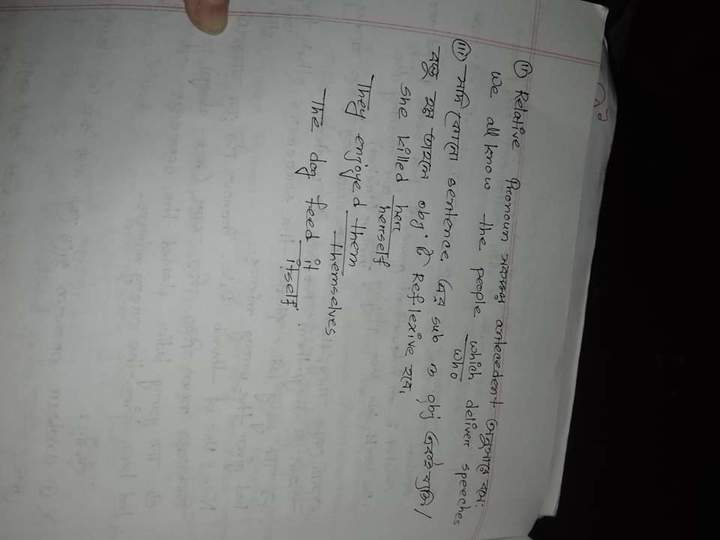 (ii) Relative Pronoun সবসময় antecedent অনুসারে হয়:
We all know the people which deliver speeches
who
(iii) যদি কোনো sentence এর sub ও obj একই ব্যক্তি/
বস্তু হয় তাহলে obj টি Reflexive হবে.
She killed her
herself
They enjoyed them
themselves
The dog feed it
itself